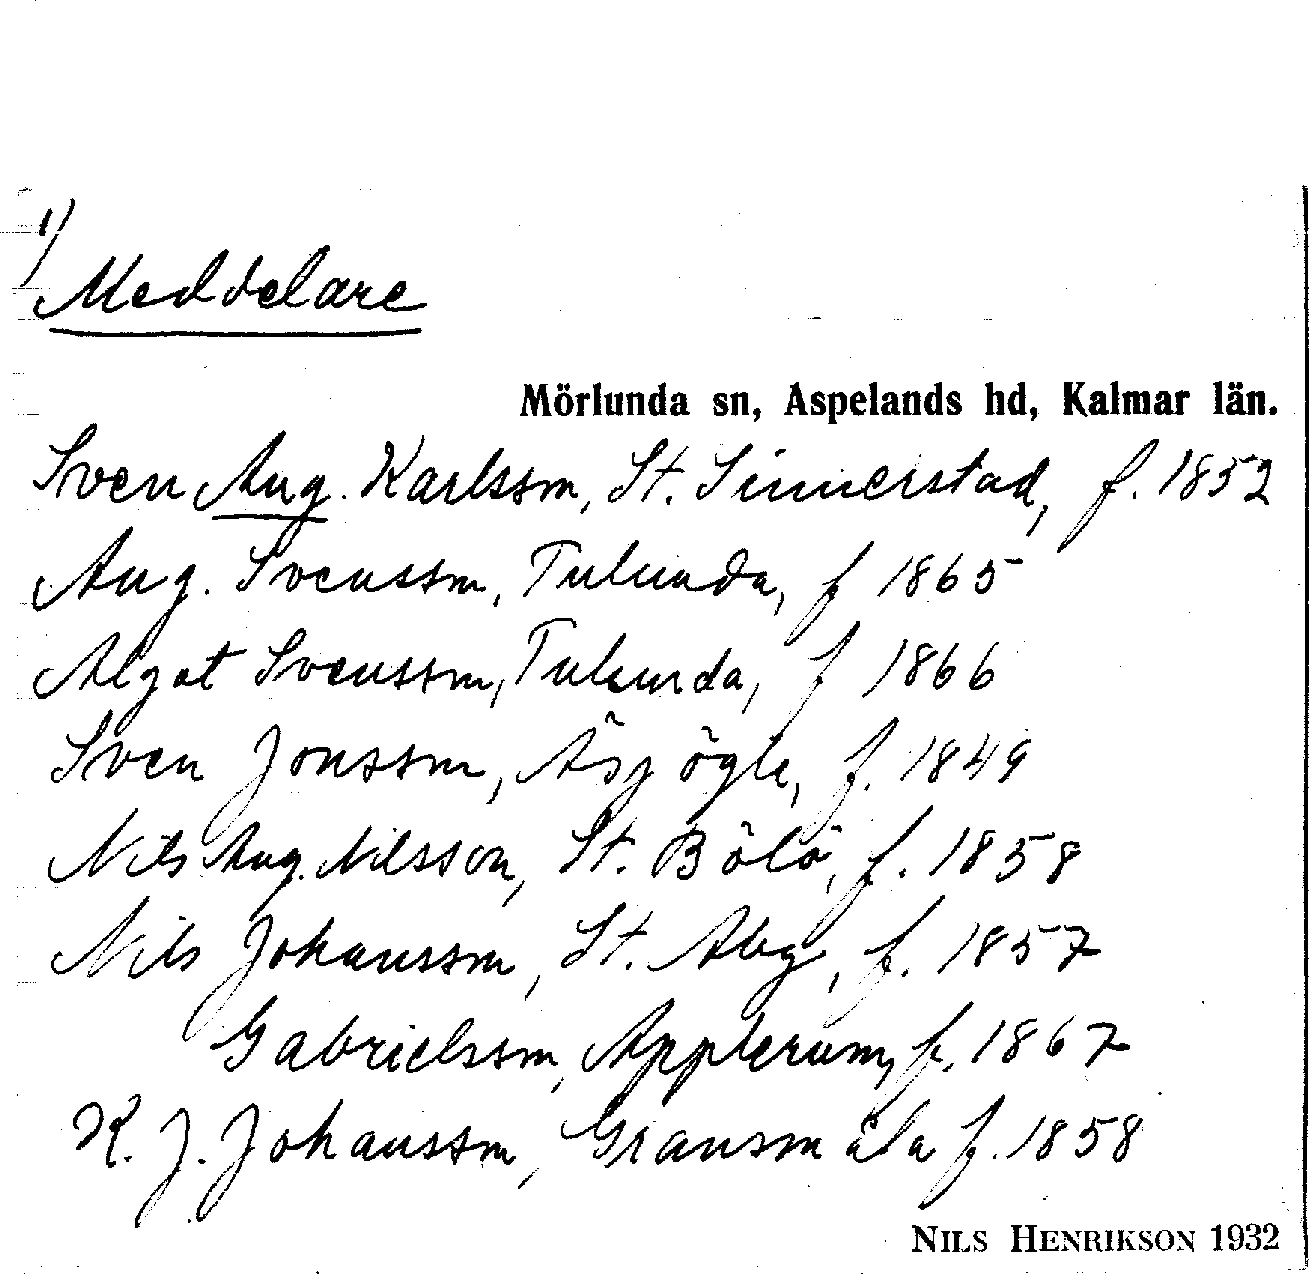 1)
Meddelare
Mörlunda sn, Aspelands hd, Kalmar län.
Sven Aug. Karlsson, St. Sinnerstad, f. 1852
Aug. Svensson, Tulunda, f 1865
Algot Svensson, Tulunda, f 1866
Sven Jonsson, Äsjögle, f. 1849
Nils Aug. Nilsson, St. Bölö, f. 1858
Nils Johansson, St. Aby, f. 1857
Gabrielsson, Applerum, f. 1867
K. J. Johansson, Gransmåla f. 1858
NILS HENRIKSON 1932